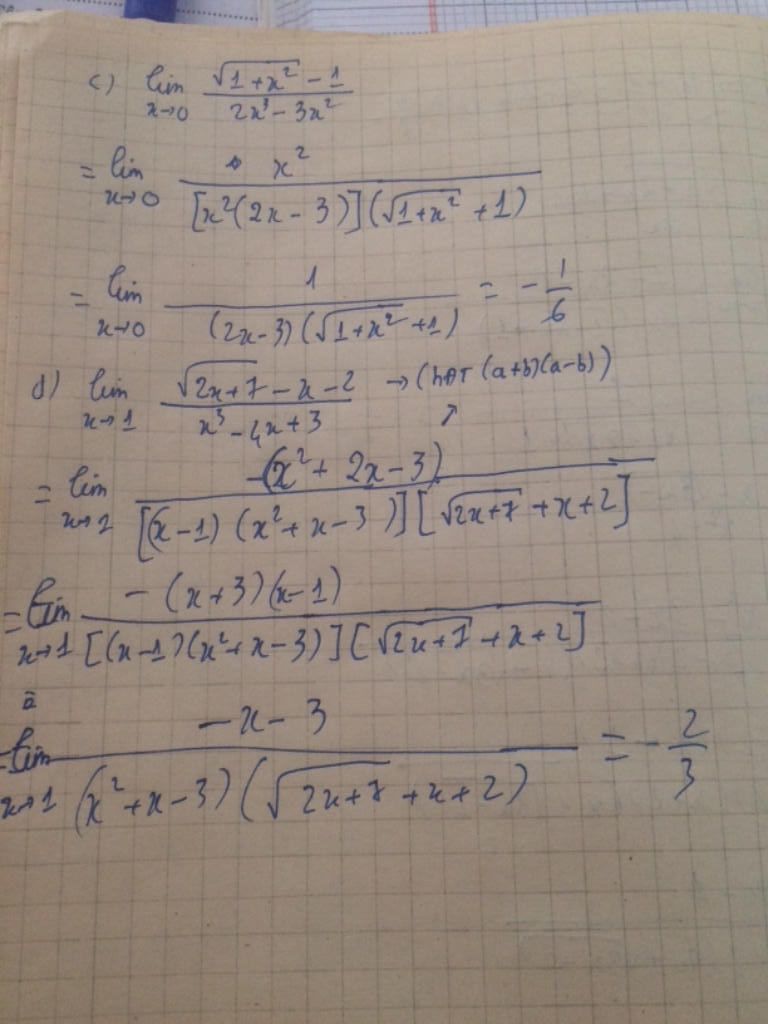 c) lim x→0 (√(1+x²) - 1) / (2x³ - 3x²)
= lim x→0 x² / ([x²(2x - 3)](√(1+x²) + 1))
= lim x→0 1 / ((2x-3)(√(1+x²) + 1)) = - 1/6
d) lim x→1 (√(2x+7) - x - 2) / (x³ - 4x + 3) → (HĐT (a+b)(a-b))
= lim x→1 -(x² + 2x - 3) / ([(x-1)(x² + x - 3)][√(2x+7) + x + 2])
= lim x→1 -(x+3)(x-1) / ([(x-1)(x² + x - 3)][√(2x+7) + x + 2])
= lim x→1 (-x - 3) / ((x² + x - 3)(√(2x+7) + x + 2)) = - 2/3